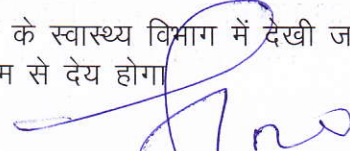 के स्वास्थ्य विभाग में देखी ज
म से देय होगा